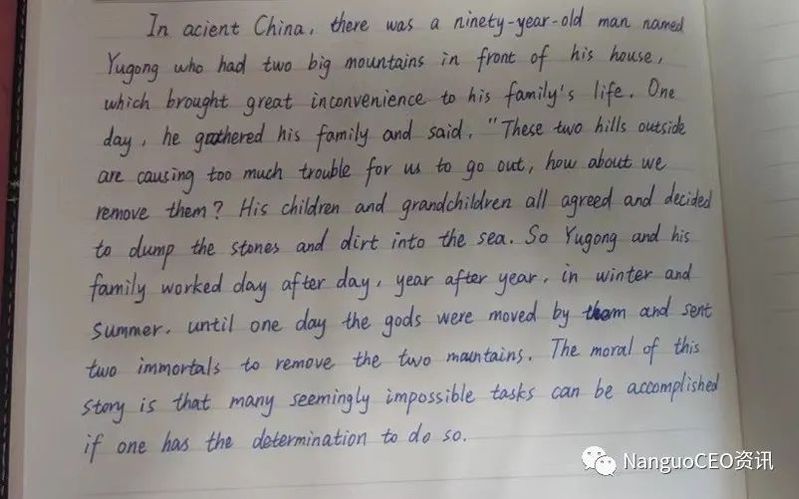 In acient China, there was a ninety-year-old man named
Yugong who had two big mountains in front of his house,
which brought great inconvenience to his family's life. One
day, he gathered his family and said, "These two hills outside
are causing too much trouble for us to go out, how about we
remove them? His children and grandchildren all agreed and decided
to dump the stones and dirt into the sea. So Yugong and his
family worked day after day, year after year, in winter and
summer, until one day the gods were moved by them and sent
two immortals to remove the two mauntains. The moral of this
story is that many seemingly impossible tasks can be accomplished
if one has the determination to do so.
NanguoCEO资讯